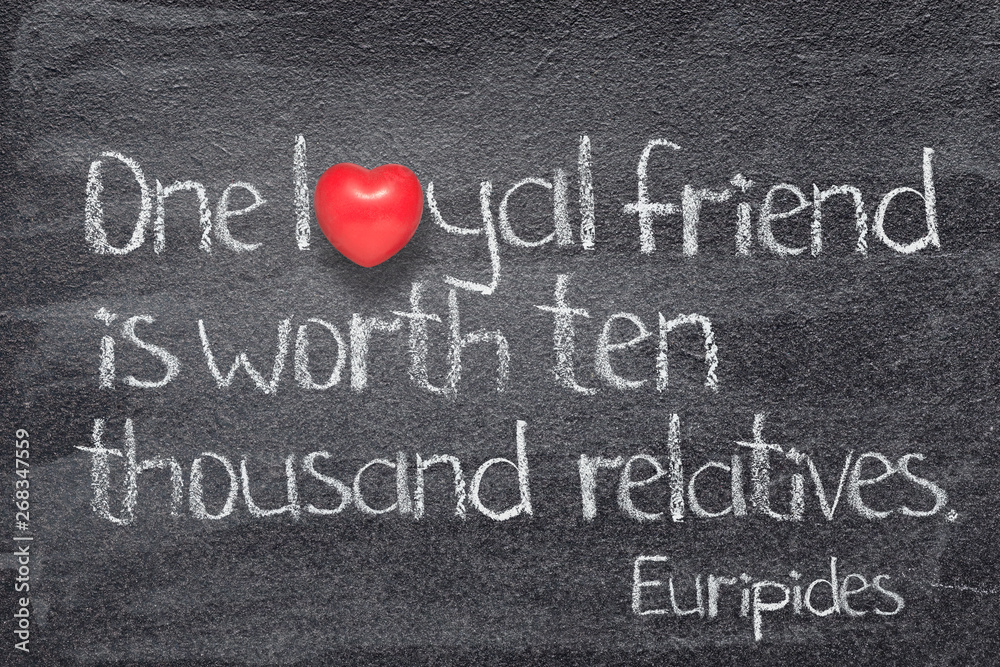 One loyal friend
is worth ten
thousand relatives.
Euripides
Adobe Stock | #268347559